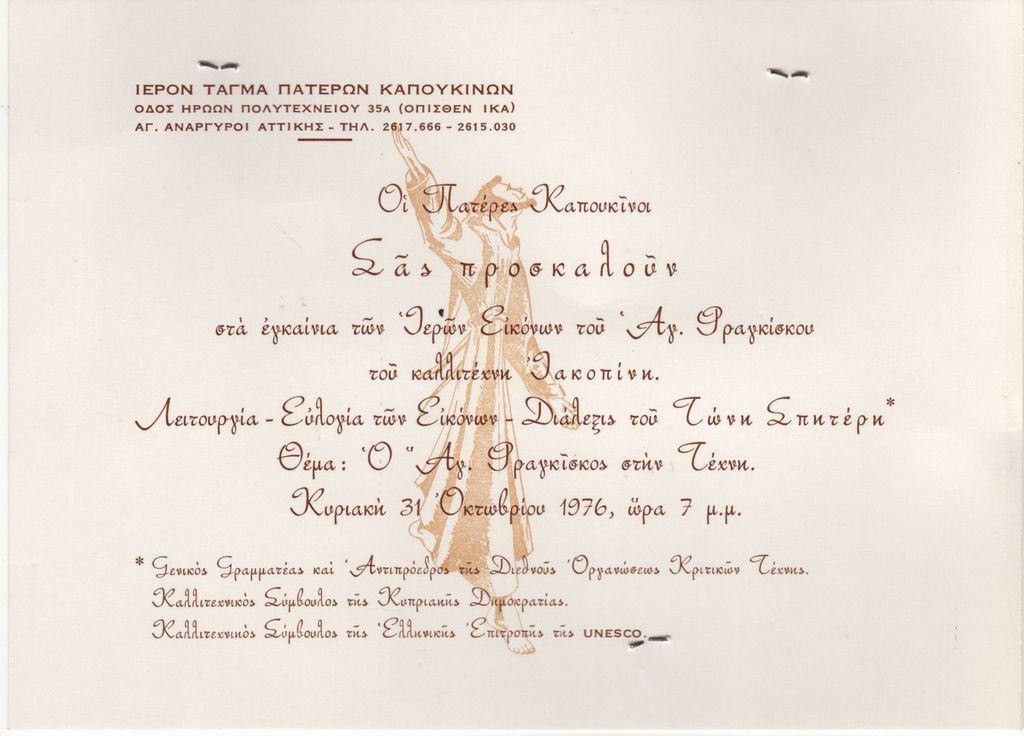 ΙΕΡΟΝ ΤΑΓΜΑ ΠΑΤΕΡΩΝ ΚΑΠΟΥΚΙΝΩΝ
ΟΔΟΣ ΗΡΩΩΝ ΠΟΛΥΤΕΧΝΕΙΟΥ 35Α (ΟΠΙΣΘΕΝ ΙΚΑ)
ΑΓ. ΑΝΑΡΓΥΡΟΙ ΑΤΤΙΚΗΣ - ΤΗΛ. 2617.666 - 2615.030
Οἱ Πατέρες Καπουκῖνοι
Σᾶς προσκαλοῦν
στὰ ἐγκαίνια τῶν Ἱερῶν Εἰκόνων τοῦ Ἁγ. Φραγκίσκου
τοῦ καλλιτέχνη Ἰακοπίνη.
Λειτουργία - Εὐλογία τῶν Εἰκόνων - Διάλεξις τοῦ Τώνη Σπητέρη*
Θέμα: Ὁ "Αγ. Φραγκῖσκος στὴν Τέχνη.
Κυριακὴ 31 Ὀκτωβρίου 1976, ὥρα 7 μ.μ.
* Γενικὸς Γραμματέας καὶ Ἀντιπρόεδρος τῆς Διεθνοῦς Ὀργανώσεως Κριτικῶν Τέχνης.
Καλλιτεχνικὸς Σύμβουλος τῆς Κυπριακῆς Δημοκρατίας.
Καλλιτεχνικὸς Σύμβουλος τῆς Ἑλληνικῆς Ἐπιτροπῆς τῆς UNESCO.